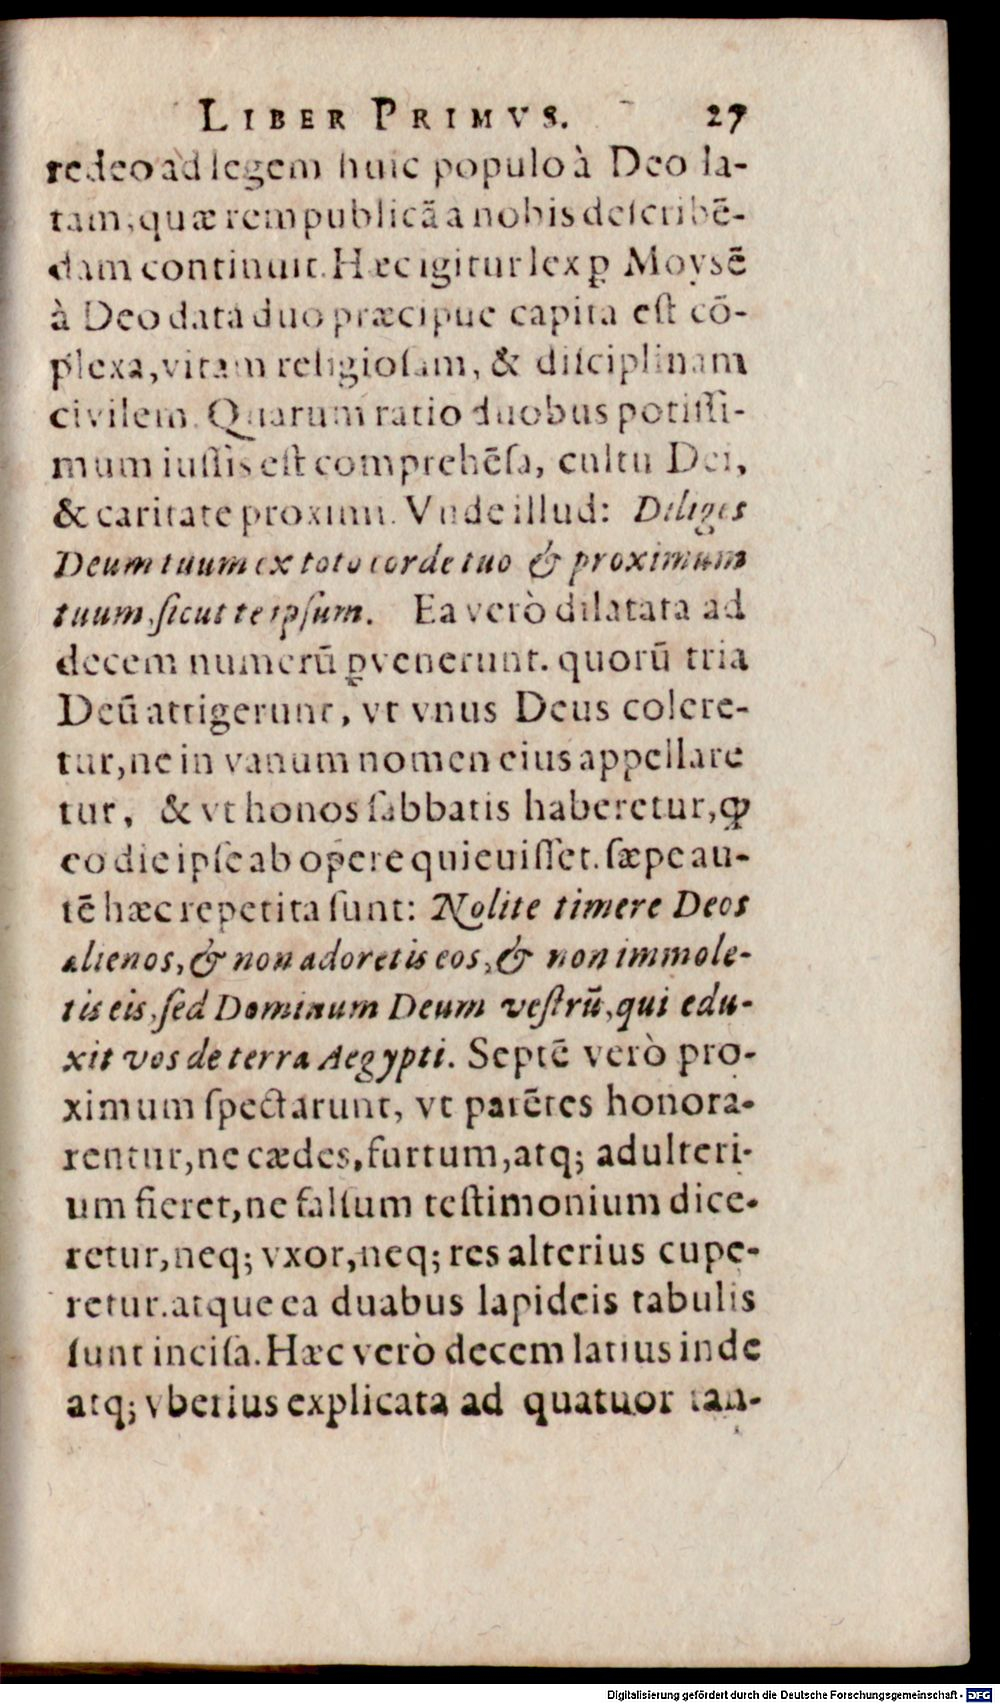 LIBER PRIMVS. 27
redeo ad legem huic populo à Deo la-
tam, quæ rempublicā a nobis describē-
dam continuit. Hæc igitur lex ꝑ Moysē
à Deo data duo præcipue capita est cō-
plexa, vitam religiosam, & disciplinam
civilem. Quarum ratio duobus potissi-
mum iussis est comprehēsa, cultu Dei,
& caritate proximi. Vnde illud: Diliges
Deum tuum ex toto corde tuo & proximum
tuum, sicut te ipsum. Ea verò dilatata ad
decem numerū ꝑvenerunt. quorū tria
Deū attigerunt, vt vnus Deus colere-
tur, ne in vanum nomen eius appellare
tur, & vt honos sabbatis haberetur, ꝙ
eo die ipse ab opere quieuisset. sæpe au-
tē hæc repetita sunt: Nolite timere Deos
alienos, & non adoretis eos, & non immole-
tis eis, sed Dominum Deum vestrū, qui edu-
xit vos de terra Aegypti. Septē verò pro-
ximum spectarunt, vt parētes honora-
rentur, ne cædes, furtum, atq; adulteri-
um fieret, ne falsum testimonium dice-
retur, neq; vxor, neq; res alterius cupe-
retur. atque ea duabus lapideis tabulis
sunt incisa. Hæc verò decem latius inde
atq; vberius explicata ad quatuor tan-
Digitalisierung gefördert durch die Deutsche Forschungsgemeinschaft - DFG